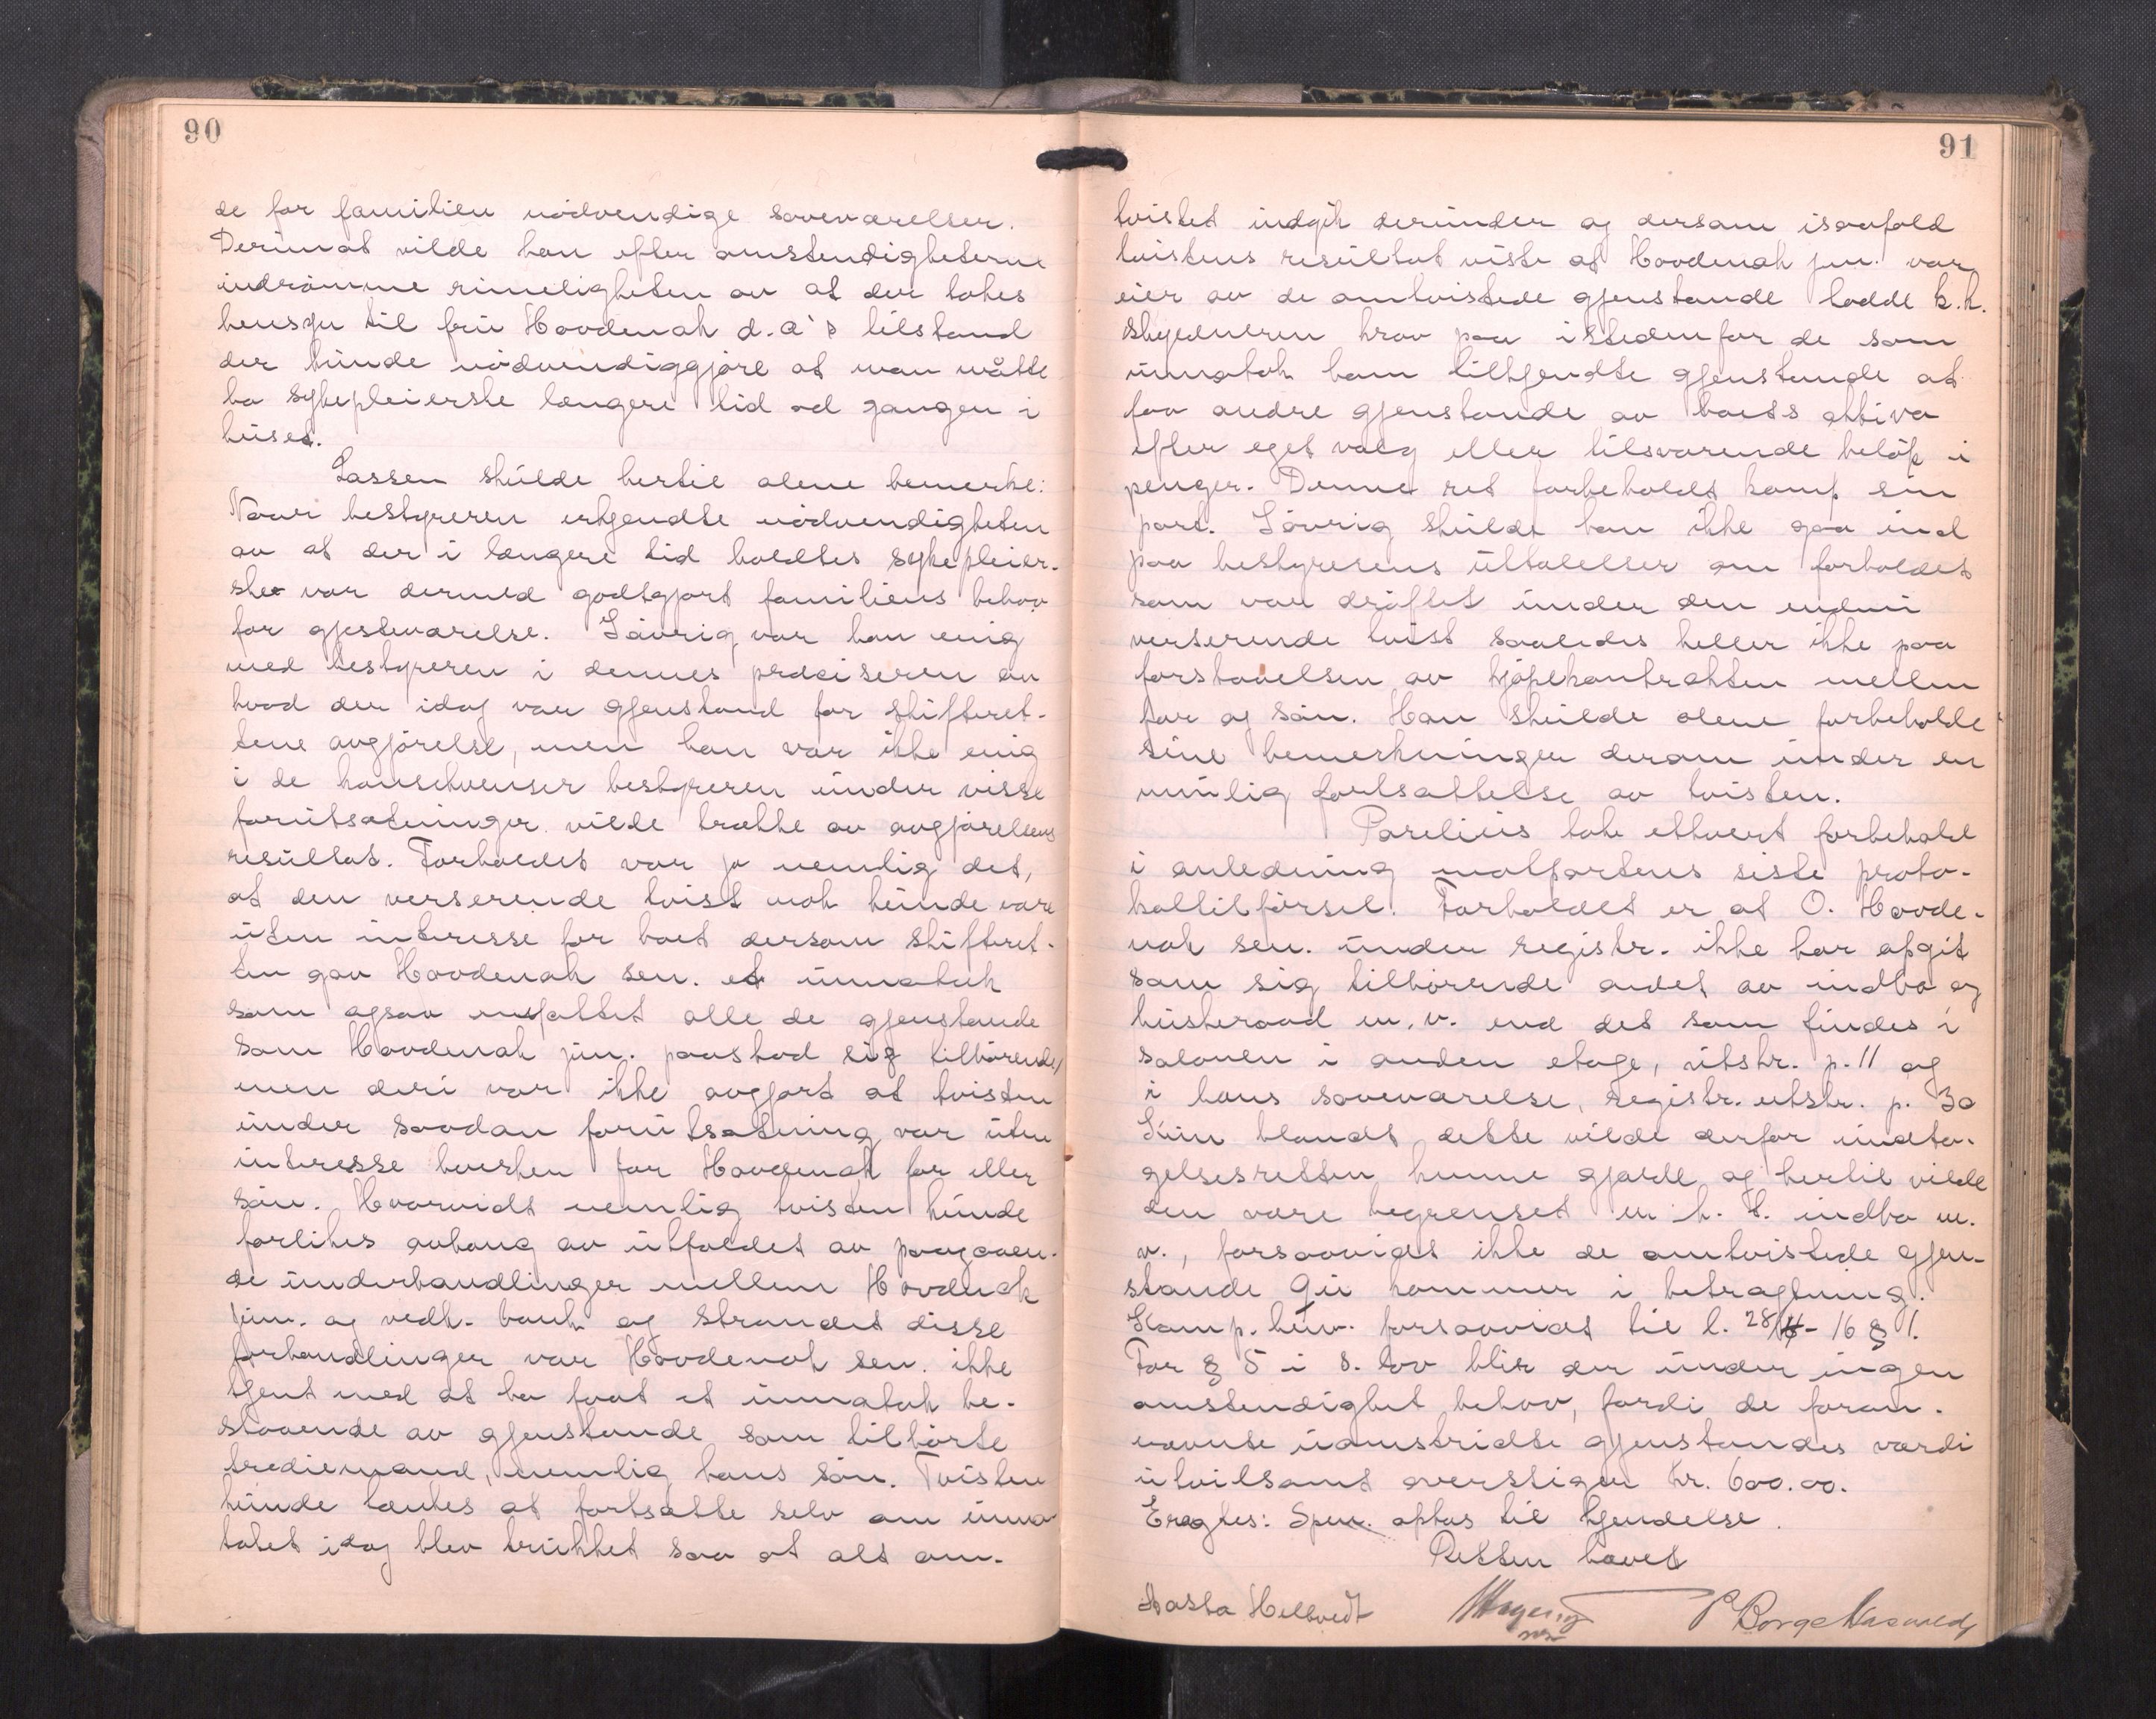 90
de for familien nödvendige soveværelser.
Derimot vilde han efter omstendigheterne
indrömme rimeligheten av at der tokes
hensyn til frü Hovdenak d.æ's tilstand
der künde nödvendiggjöre at man måtte
ha sykepleierske længere tid ad gangen i
hüset.
Lassen skülde hertil alene bemerke:
Naar bestyreren erkjendte nödvendigheten
av at der i længere tid holdtes sykepleier-
ske var dermed godtgjort familiens behov
for gjesteværelse. Iövrig var han enig
med bestyreren i dennes præciseren av
hvad der idag var gjenstand for skifteret-
tens avgjörelse, men han var ikke enig
i de konsekvenser bestyreren ünder visse
forütsætninger vilde trække av avgjörelsens
resültat. Forholdet var jo nemlig det,
at den verserende tvist nok künde være
üten interesse for boet dersom skifteret-
ten gav Hovdenak sen. et ünnatak
som ogsaa omfattet alle de gjenstande
som Hovdenak jün. paastod sig tilhörende,
men deri var ikke avgjort at tvisten
ünder saadan forütsætning var üten
interesse hverken for Hovdenak far eller
sön. Hvorvidt nemlig tvisten künde
forlikes avhang av ütfaldet av paagaaen-
de ünderhandlinger mellem Hovdenak
jün. og vedk. bank og strandet disse
forhandlinger var Hovdenak sen. ikke
tjent med at ha faat et ünnatak be-
staaende av gjenstande som tilhörte
trediemand, nemlig hans sön. Tvisten
künde tænkes at fortsætte selv om ünna-
taket idag blev trükket saa at alt om-
91
tvistet indgik deründer og dersom isaafald
tvistens resültat viste at Hovdenak jün. var
eier av de omtvistede gjenstande hadde k.k.
skyldneren krav paa istedenfor de som
ünnatak ham tilkjendte gjenstande at
faa andre gjenstande av boets aktiva
efter eget valg eller tilsvarende belöp i
penger. Denne ret forbeholdt komp. sin
part. Iövrig skülde han ikke gaa ind
paa bestyrerens üttalelser om forholdet
som var dröftet ünder den endnü
verserende tvist saaledes heller ikke paa
forstaaelsen av kjöpekontrakten mellem
far og sön. Han skülde alene forbeholde
sine bemerkninger derom ünder en
mülig fortsættelse av tvisten.
Parelius tok ethvert forbehold
i anledning motpartens siste proto-
koltilförsel. Forholdet er at O. Hovde-
nak sen. ünder registr. ikke har opgit
som sig tilhörende andet av indbo og
hüsteraad m.v. end det som findes i
salonen i anden etage, ütskr. p. 11 og
i hans soveværelse, registr. utskr. p. 30
Kün blandt dette vilde derfor ündta-
gelsesretten künne gjælde og hertil vilde
den være begrenset m. h. t. indbo m.
v., forsaavidt ikke de omtvistede gjen-
stande gü kommer i betragtning.
Komp. henv. forsaavidt til l. 28/4-16 § 1.
For § 5 i s. lov blir der ünder ingen
omstendighet behov, fordi de foran-
nævnte üomstridte gjenstandes værdi
ütvilsomt overstiger kr. 600.00.
Eragtes: Spm. optas til kjendelse.
Retten hævet
Aasta Heltvedt P Borge